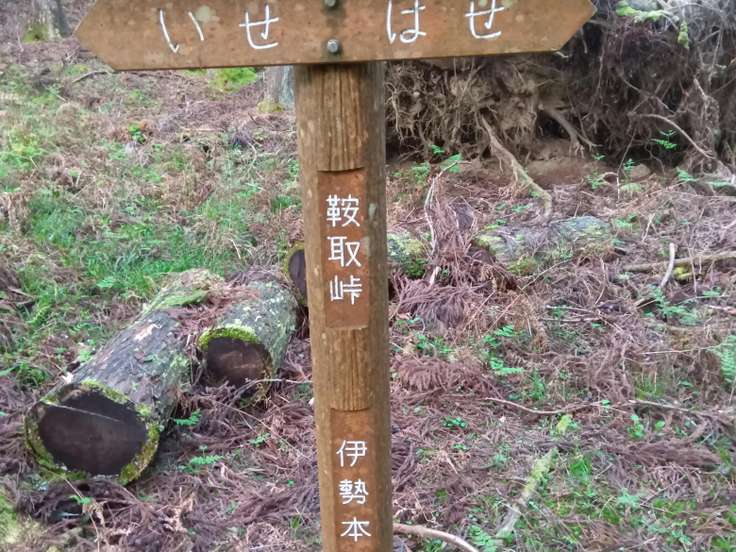 いせ はせ
鞍取峠
伊勢本